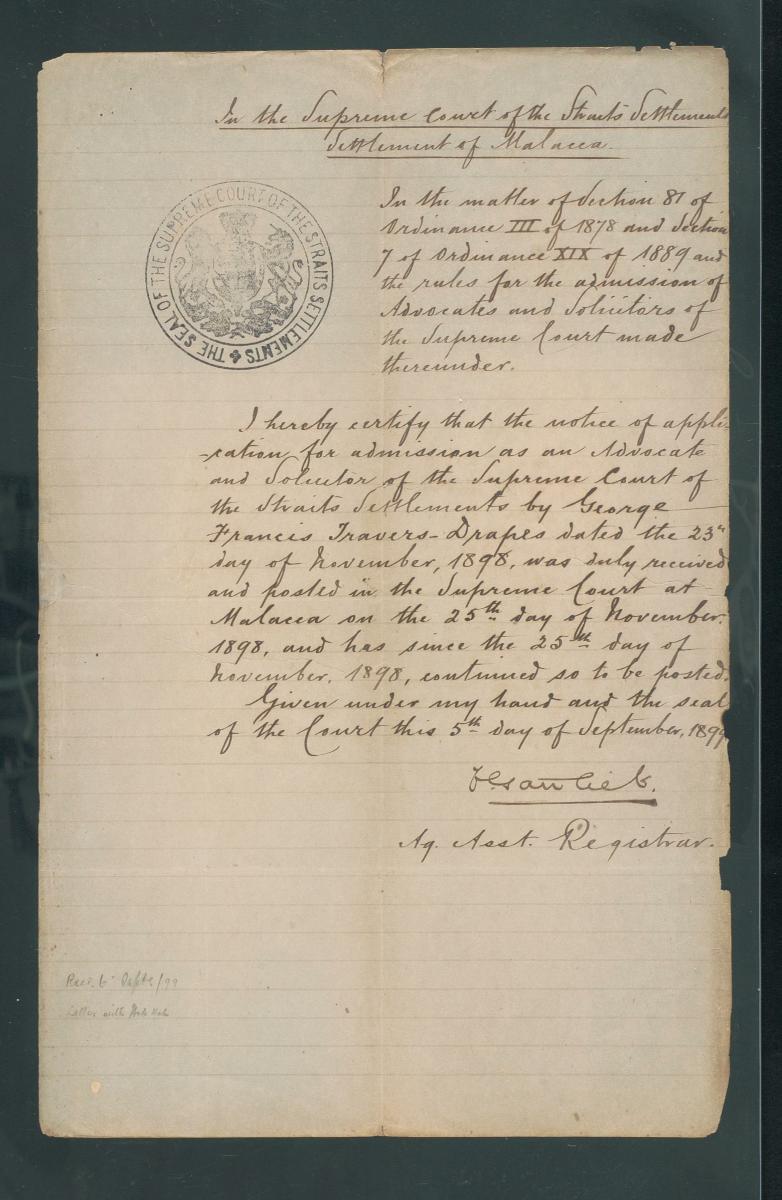 In the Supreme Court of the Straits Settlements
Settlement of Malacca.
THE SEAL OF THE SUPREME COURT OF THE STRAITS SETTLEMENTS
In the matter of Section 81 of
Ordinance III of 1878 and Section
7 of Ordinance XIX of 1889 and
the rules for the admission of
Advocates and Solicitors of
the Supreme Court made
thereunder.
I hereby certify that the notice of appli-
-cation for admission as an Advocate
and Solicitor of the Supreme Court of
the Straits Settlements by George
Francis Travers-Drapes dated the 23rd
day of November, 1898, was duly received
and posted in the Supreme Court at
Malacca on the 25th day of November.
1898, and has since the 25th day of
November, 1898, continued so to be posted.
Given under my hand and the seal
of the Court this 5th day of September, 1899
Ag. Asst. Registrar.
Rec. 6 Septr/99
Letter with